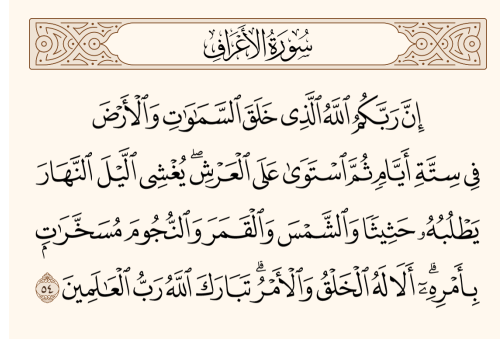 سُورَةُ الأَعْرَافِ
إِنَّ رَبَّكُمُ ٱللَّهُ ٱلَّذِى خَلَقَ ٱلسَّمَٰوَٰتِ وَٱلْأَرْضَ
فِى سِتَّةِ أَيَّامٍ ثُمَّ ٱسْتَوَىٰ عَلَى ٱلْعَرْشِۖ يُغْشِى ٱلَّيْلَ ٱلنَّهَارَ
يَطْلُبُهُۥ حَثِيثًا وَٱلشَّمْسَ وَٱلْقَمَرَ وَٱلنُّجُومَ مُسَخَّرَٰتٍۭ
بِأَمْرِهِۦٓۗ أَلَا لَهُ ٱلْخَلْقُ وَٱلْأَمْرُۗ تَبَارَكَ ٱللَّهُ رَبُّ ٱلْعَٰلَمِينَ ٥٤